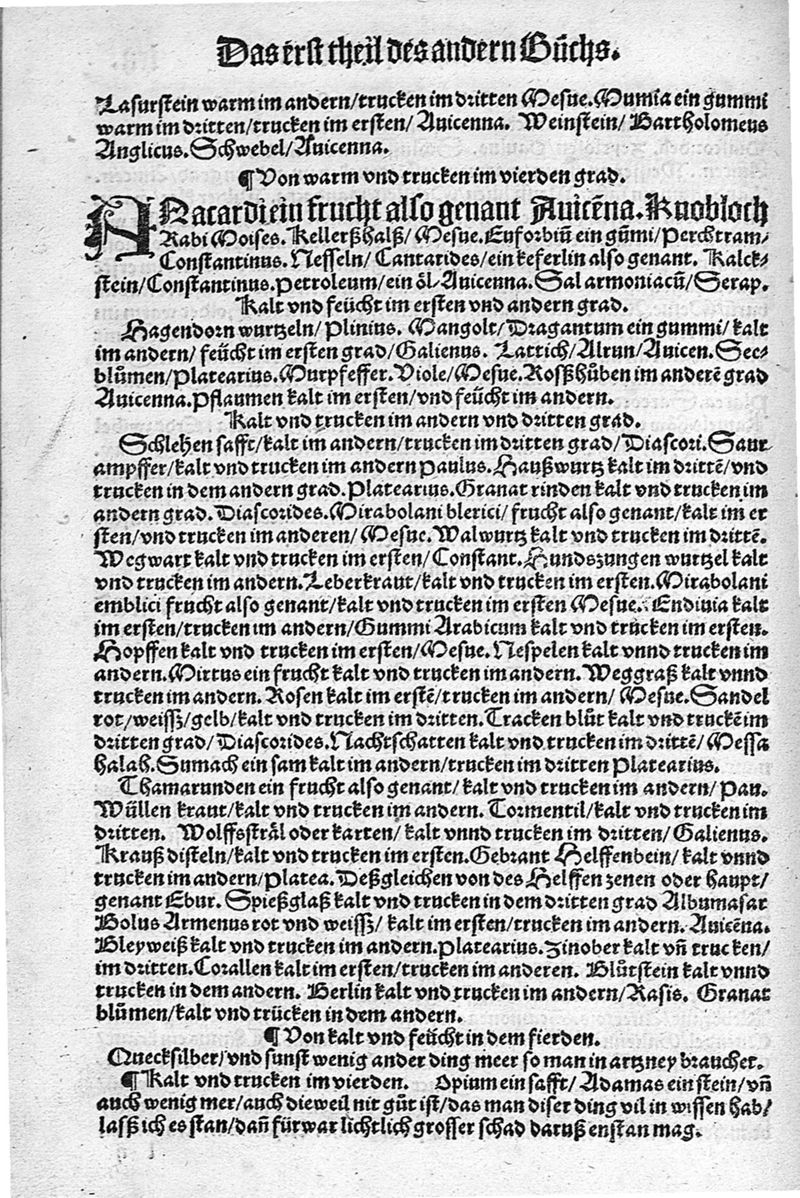 Das erst theil des andern Bůchs.
Lasurstein warm im andern/trucken im dritten Mesue. Mumia ein gummi
warm im dritten/trucken im ersten/ Auicenna. Weinstein/ Bartholomeus
Anglicus. Schwebel/Auicenna.
¶ Von warm vnd trucken im vierden grad.
ANacardi ein frucht also genant Auicēna. Knobloch
Rabi Moises. Kellerßhalß/ Mesue. Euforbiū ein gūmi/ Perchtram/
Constantinus. Nesseln/ Cantarides/ein keferlin also genant. Kalck-
stein/Constantinus. Petroleum/ein ȯl Auicenna. Sal armoniacū/ Serap.
Kalt vnd feücht im ersten vnd andern grad.
Hagendorn wurtzeln/ Plinius. Mangolt/Dragantum ein gummi/ kalt
im andern/ feücht im ersten grad/Galienus. Lattich/Alrun/Auicen. Sec-
blůmen/Platearius. Murpfeffer. Viole/Mesue. Roßhůben im anderē grad
Auicenna. Pflaumen kalt im ersten/vnd feücht im andern.
Kalt vnd trucken im andern vnd dritten grad.
Schlehen safft/kalt im andern/trucken im dritten grad/Diascori. Saur
ampffer/kalt vnd trucken im andern Paulus. Haußwurtz kalt im drittē/vnd
trucken in dem andern grad. Platearius. Granat rinden kalt vnd trucken im
andern grad. Diascorides. Mirabolani blerici/ frucht also genant/kalt im er
sten/vnd trucken im anderen/ Mesue. Walwurtz kalt vnd trucken im drittē.
Wegwart kalt vnd trucken im ersten/Constant. Hundszungen wurtzel kalt
vnd trucken im andern. Leberkraut/kalt vnd trucken im ersten. Mirabolani
emblici frucht also genant/kalt vnd trucken im ersten Mesue. Endiuia kalt
im ersten/trucken im andern/Gummi Arabicum kalt vnd trucken im ersten.
Hopffen kalt vnd trucken im ersten/Mesue. Nespelen kalt vnnd trucken im
andern. Mirtus ein frucht kalt vnd trucken im andern. Weggraß kalt vnnd
trucken im andern. Rosen kalt im erstē/trucken im andern/ Mesue. Sandel
rot/weissz/gelb/kalt vnd trucken im dritten. Tracken blůt kalt vnd truckē im
dritten grad/ Diascorides. Nachtschatten kalt vnd trucken im drittē/ Messa
halah. Sumach ein sam kalt im andern/trucken im dritten Platearius.
Thamarunden ein frucht also genant/ kalt vnd trucken im andern/ Pau.
Wüllen kraut/kalt vnd trucken im andern. Tormentil/kalt vnd trucken im
dritten. Wolffsträl oder karten/ kalt vnnd trucken im dritten/ Galienus.
Krauß disteln/kalt vnd trucken im ersten. Gebrant Helffenbein/ kalt vnnd
trucken im andern/Platea. Deßgleichen von des Helffen zenen oder haupt/
genant Ebur. Spießglaß kalt vnd trucken in dem dritten grad Albumasar
Bolus Armenus rot vnd weissz/ kalt im ersten/trucken im andern. Auicēna.
Bleyweiß kalt vnd trucken im andern. Platearius. Zinober kalt vñ trucken/
im dritten. Corallen kalt im ersten/trucken im anderen. Blůtstein kalt vnnd
trucken in dem andern. Berlin kalt vnd trucken im andern/Rasis. Granat
blůmen/kalt vnd trücken in dem andern.
¶ Von kalt vnd feücht in dem fierden.
Quecksilber/vnd sunst wenig ander ding meer so man in artzney brauchet.
¶ Kalt vnd trucken im vierden. Opium ein safft/ Adamas ein stein/vñ
auch wenig mer/auch dieweil nit gůt ist/das man diser ding vil in wissen hab/
lassz ich es stan/dañ fürwar lichtlich grosser schad daruß enstan mag.